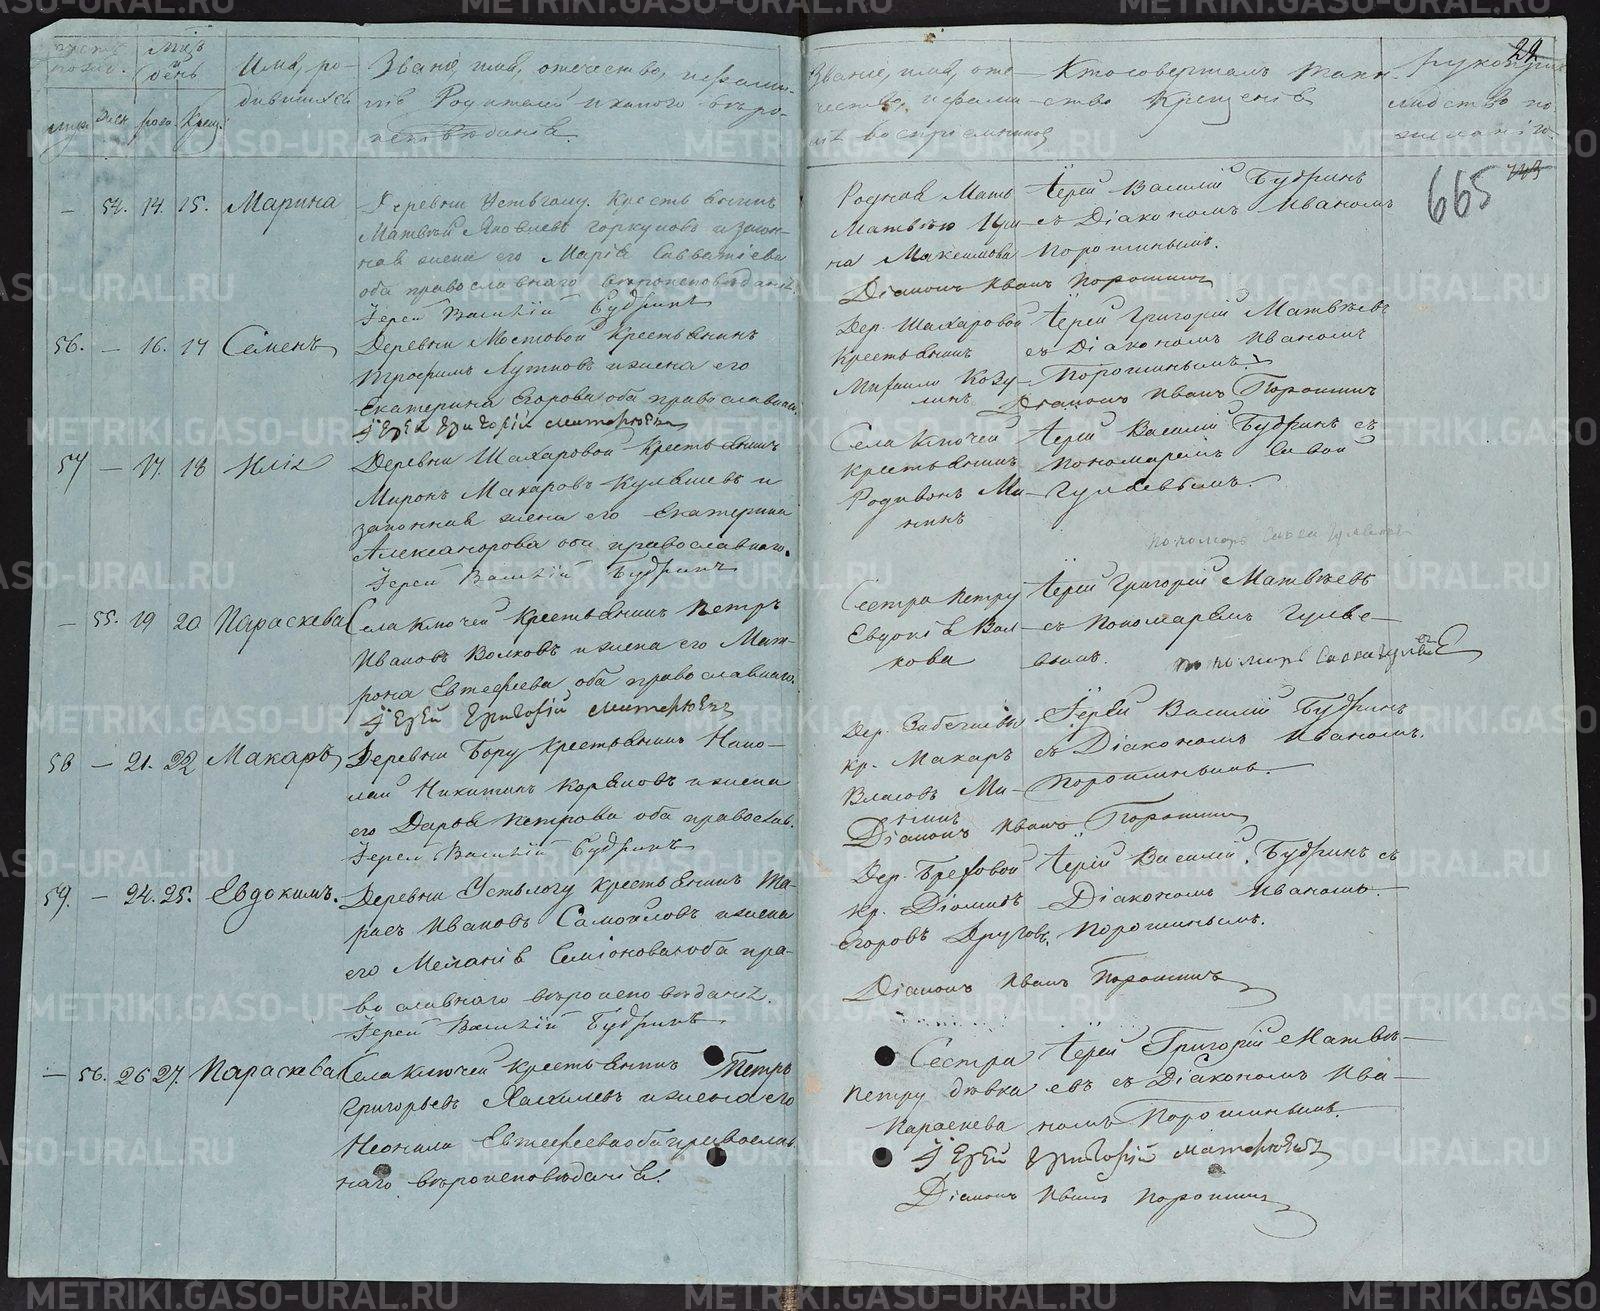 Счетъ родив.
Мцъ и день
Имя, ро-
дившихся
Званіе, имя, отечество, и фами-
лія Родителей и какого вѣро-
исповѣданія.
муж. женс. рожд. крещ.
Званіе, имя, оте-
чество, и фами-
лія воспреемниковъ
Кто совершалъ таин-
ство Крещенія
Рукопри-
кладство по
желанію.
22
665
— 54. 14. 15. Марина
Деревни Устьлогу. Крестьянинъ
Матвѣй Яковлевъ Горкуновъ и закон-
ная жена его Марія Савватіева
оба православнаго вѣроисповѣданія.
Іерей Василій Будринъ
Родная Мать
Матвѣю Ири-
на Максимова
Іерей Василій Будринъ
съ Діакономъ Иваномъ
Порошинымъ.
Діаконъ Иванъ Порошинъ
56. — 16. 17 Семенъ
Деревни Мостовой Крестьянинъ
Трофимъ Лутковъ и жена его
Екатерина Егорова оба православнаго.
Іерей Григорій Матвѣевъ
Дер. Шахаровой
Крестьянинъ
Михаило Козу-
линъ
Іерей Григорій Матвѣевъ
съ Діакономъ Иваномъ
Порошинымъ.
Діаконъ Иванъ Порошинъ
57 — 17. 18 Илія
Деревни Шахаровой Крестьянинъ
Миронъ Макаровъ Кулышевъ и
законная жена его Екатерина
Александрова оба православнаго.
Іерей Василій Будринъ
Села Ключей
Крестьянинъ
Родивонъ Ми-
нинъ
Іерей Василій Будринъ съ
пономаремъ Савой
Гуляевымъ.
пономарь Савва Гуляевъ
— 55. 19 20 Параскева
Села Ключей Крестьянинъ Петръ
Ивановъ Волковъ и жена его Мат-
рона Евтефеева оба православнаго.
Іерей Григорій Матвѣевъ
Сестра Петру
Евдокія Вол-
кова
Іерей Григорій Матвѣевъ
съ Пономаремъ Гуляе-
вымъ.
пономарь Савва Гуляевъ
58 — 21. 22 Макаръ
Деревни Бору Крестьянинъ Нико-
лай Никитинъ Коряковъ и жена
его Дарья Петрова оба православ.
Іерей Василій Будринъ
кр. Макаръ
Власовъ Ми-
нинъ
Іерей Василій Будринъ
съ Діакономъ Иваномъ.
Порошинымъ.
Діаконъ Иванъ Порошинъ
59. — 24. 25. Евдокимъ.
Деревни Устьлогу Крестьянинъ Та-
расъ Ивановъ Самойловъ и жена
его Меланія Семіонова оба пра-
вославнаго вѣроисповѣданія.
Іерей Василій Будринъ
Дер. Брехвой
кр. Діомидъ
Егоровъ Друговъ.
Іерей Василій Будринъ съ
Діакономъ Иваномъ.
Порошинымъ.
Діаконъ Иванъ Порошинъ
— 56. 26 27. Параскева
Села Ключей Крестьянинъ Петръ
Григорьевъ Яхимцевъ и жена его
Неонила Евтефеева оба православ-
наго вѣроисповѣданія.
Сестра
Петру дѣвка
Параскева
Іерей Григорій Матвѣ-
евъ съ Діакономъ Ива-
номъ Порошинымъ.
Іерей Григорій Матвѣевъ
Діаконъ Иванъ Порошинъ
METRIKI.GASO-URAL.RU